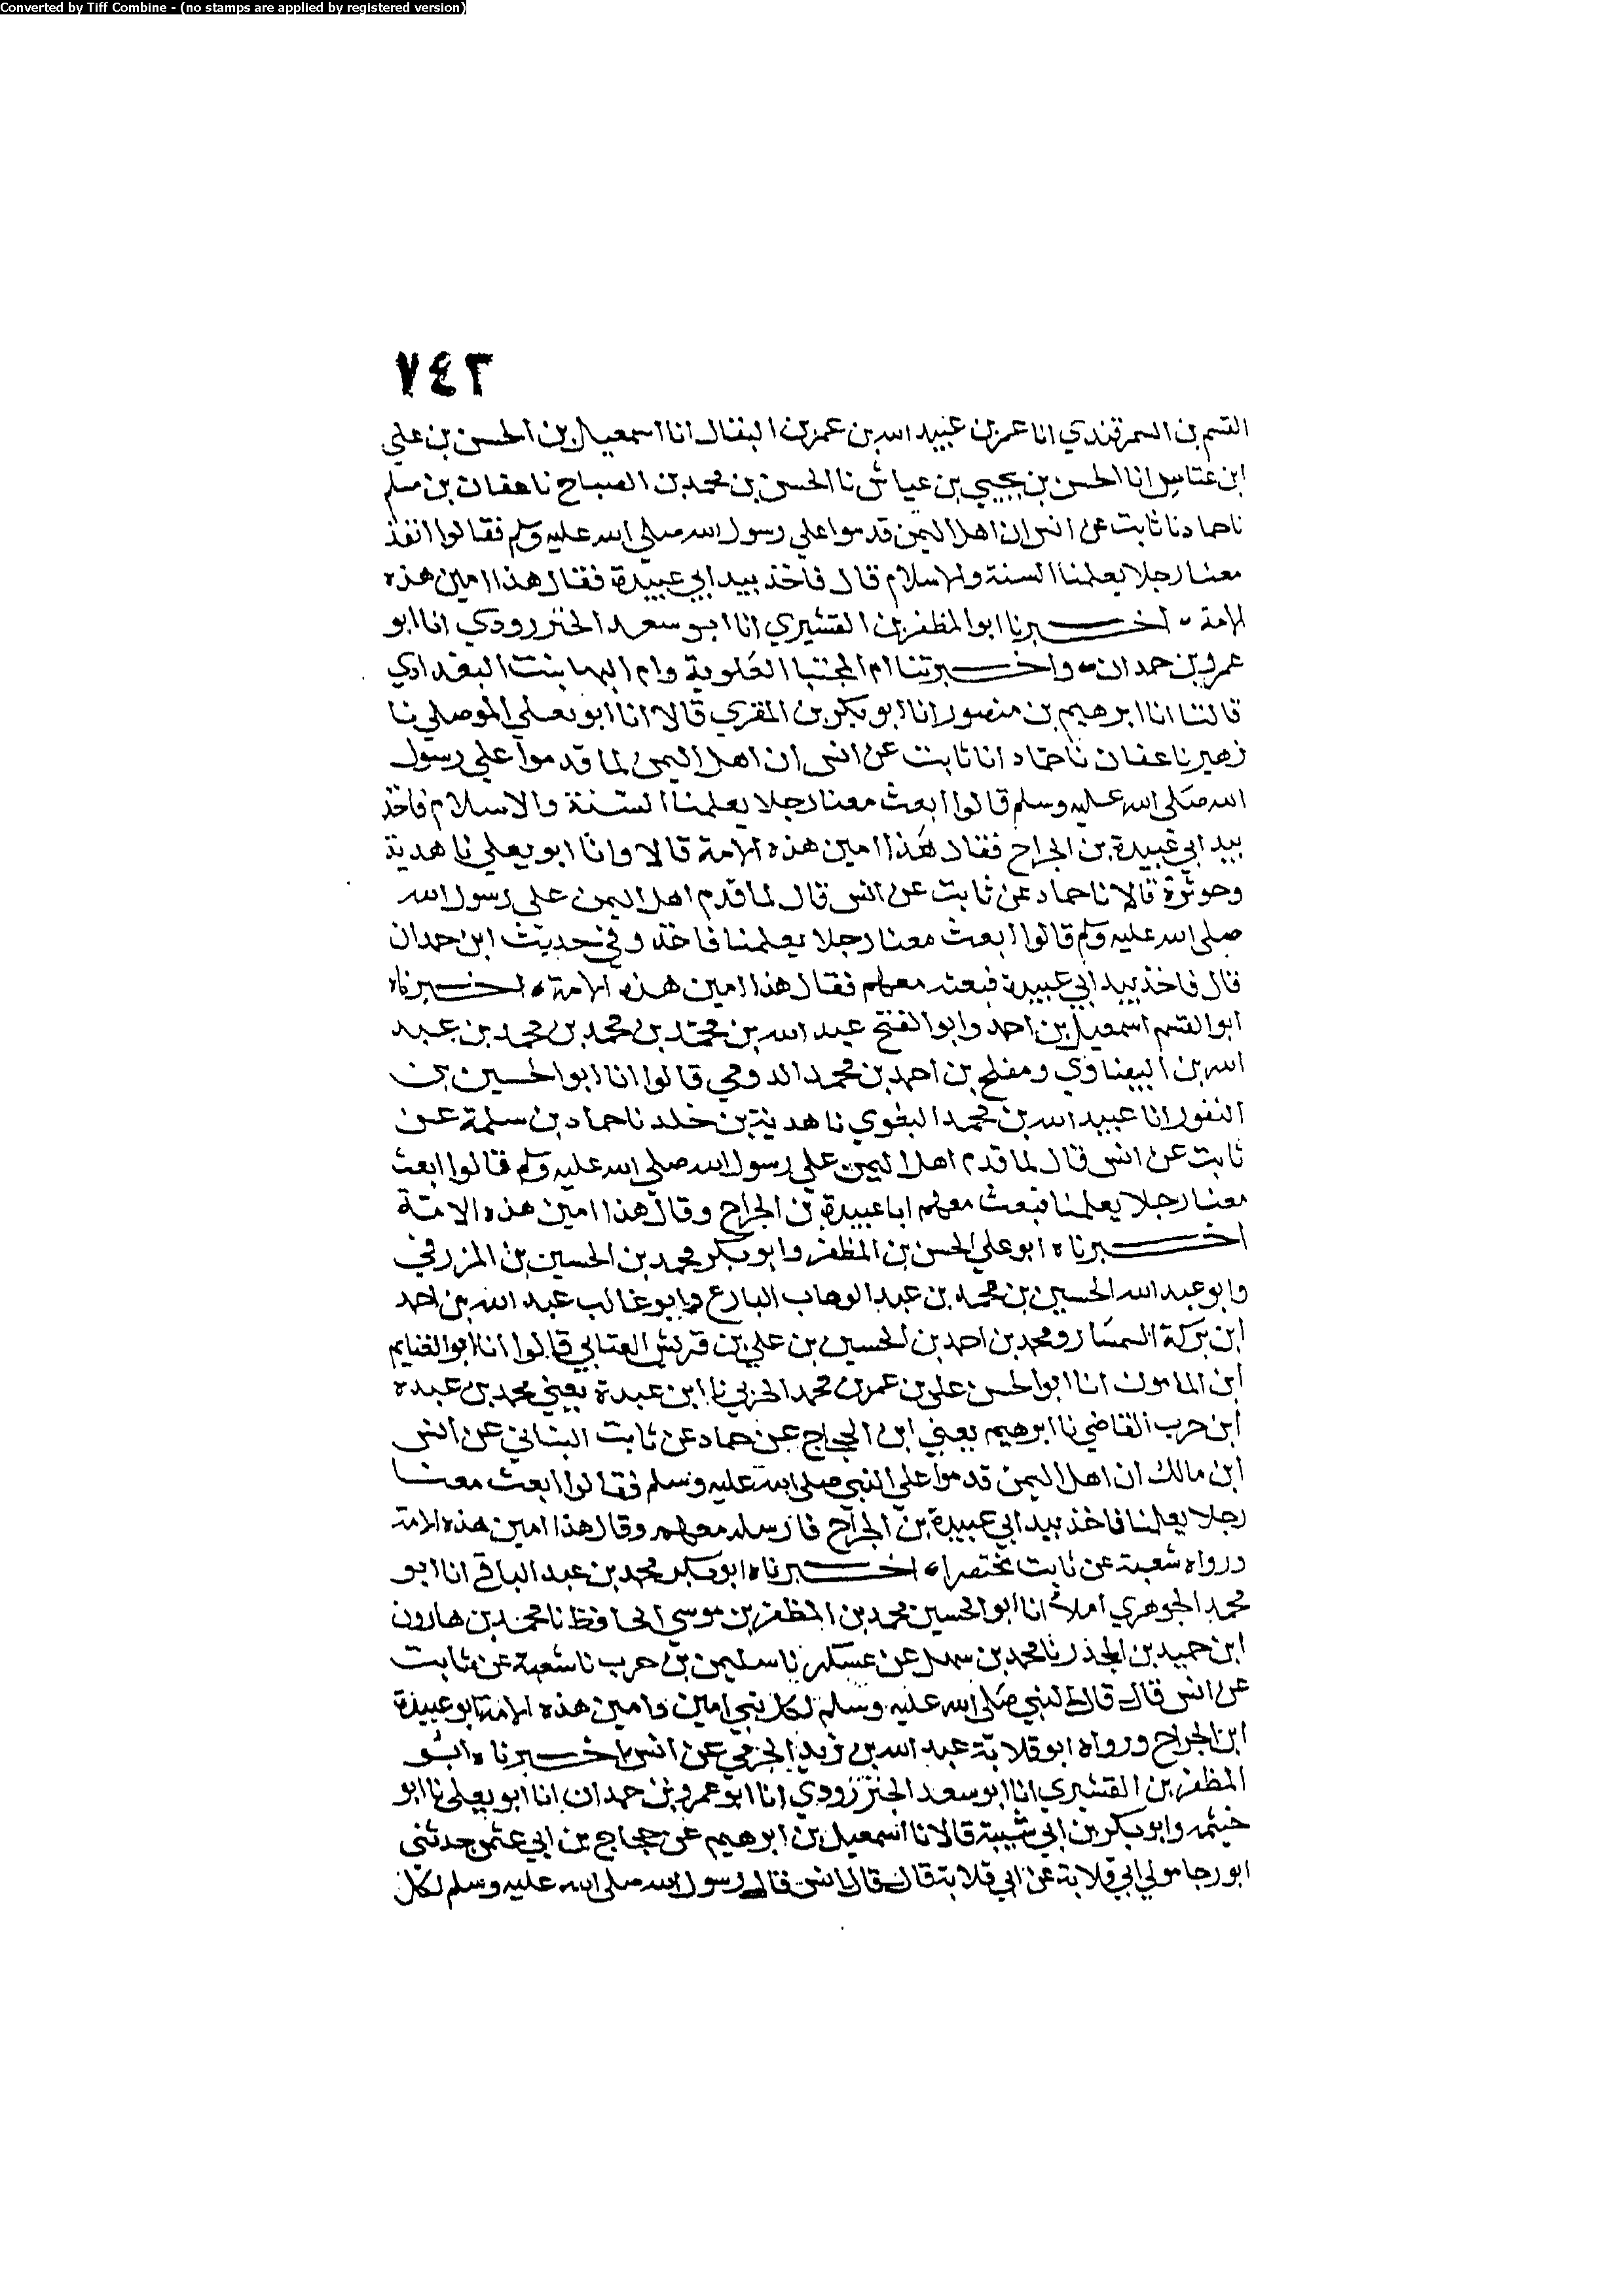 Converted by Tiff Combine - (no stamps are applied by registered version)
٧٤٣
القسم بن السمرقندي انا عمر بن عبيد الله بن عمر بن البقال انا اسمعيل بن الحسن بن علي
ابن عتاس انا الحسن بن يحيي بن عياش نا الحسن بن محمد بن الصباح نا عفان بن مسلم
نا حماد نا ثابت عن انس ان اهل اليمن قدموا علي رسول الله صلي الله عليه وسلم فقالوا انفذ
معنا رجلا يعلمنا السنة والاسلام قال فاخذ بيد ابي عبيدة فقال هذا امين هذه
الامة اخبرنا ابو المظفر بن القشيري انا ابو سعد الخنزرودي انا ابو
عمرو بن حمدان واخبرتنا ام المجتبا العلوية وام البها بنت البغدادي
قالتا انا ابرهيم بن منصور انا ابو بكر بن المقري قالا انا ابو يعلي الموصلي نا
زهير نا عفان نا حماد انا ثابت عن انس ان اهل اليمن لما قدموا علي رسول
الله صلى الله عليه وسلم قالوا ابعث معنا رجلا يعلمنا السنة والاسلام فاخذ
بيد ابي عبيدة بن الجراح فقال هذا امين هذه الامة قالا وانا ابو يعلي نا هدبة
وحوثرة قالا نا حماد عن ثابت عن انس قال لما قدم اهل اليمن على رسول الله
صلى الله عليه وسلم قالوا ابعث معنا رجلا يعلمنا فاخذ وفي حديث ابن حمدان
قال فاخذ بيد ابي عبيدة فبعثه معهم فقال هذا امين هذه الامة اخبرناه
ابو القسم اسمعيل بن احمد وابو الفتح عبد الله بن محمد بن محمد بن محمد بن عبد
الله بن البيضاوي ومفلح بن احمد بن محمد الدومي قالوا انا ابو الحسين بن
النقور انا عبيد الله بن محمد البغوي نا هدبة بن خلد نا حماد بن سلمة عن
ثابت عن انس قال لما قدم اهل اليمن علي رسول الله صلي الله عليه وسلم قالوا ابعث
معنا رجلا يعلمنا فبعث معهم ابا عبيدة بن الجراح وقال هذا امين هذه الامة
اخبرناه ابو علي الحسن بن المظفر وابو بكر محمد بن الحسين بن المزرفي
وابو عبد الله الحسين بن محمد بن عبد الوهاب البارع وابو غالب عبد الله بن احمد
ابن بركة السمسار ومحمد بن احمد بن الحسين بن علي بن قريش العتابي قالوا انا ابو الغنايم
ابن المامون انا ابو الحسن علي بن عمر بن محمد الحربي نا ابن عبدة يعني محمد بن عبده
ابن حرب القاضي نا ابرهيم يعني ابن الحجاج عن حماد عن ثابت البناني عن انس
ابن مالك ان اهل اليمن قدموا علي النبي صلي الله عليه وسلم فقالوا ابعث معنا
رجلا يعلمنا فاخذ بيد ابي عبيدة بن الجراح فارسله معهم وقال هذا امين هذه الامة
ورواه شعبة عن ثابت مختصرا اخبرناه ابو بكر محمد بن عبد الباقي انا ابو
محمد الجوهري املاء انا ابو الحسين محمد بن المظفر بن موسي الحافظ نا محمد بن هارون
ابن حميد بن المجدر نا محمد بن سهل عن عسكر نا سليمن بن حرب نا شعبة عن ثابت
عن انس قال قال النبي صلى الله عليه وسلم لكل نبي امين وامين هذه الامة ابو عبيدة
ابن الجراح ورواه ابو قلابة عبد الله بن زيد الجرمي عن انس اخبرناه ابو
المظفر بن القشيري انا ابو سعد الجنزرودي انا ابو عمرو بن حمدان انا ابو يعلي نا ابو
خيثمه وابو بكر بن ابي شيبة قالا نا اسمعيل بن ابرهيم عن حجاج بن ابي عثمن حدثني
ابو رجا مولي ابي قلابة عن ابي قلابة قال قال انس قال رسول الله صلى الله عليه وسلم لكل